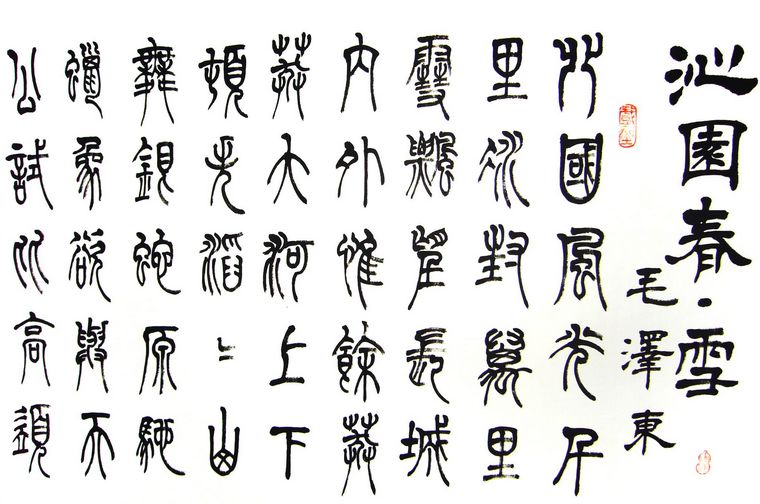 沁園春·雪
毛澤東
北國風光千
里冰封萬里
雪飄望長城
內外惟餘莽
莽大河上下
頓失滔〻山
舞銀蛇原馳
蠟象欲與天
公試比高須